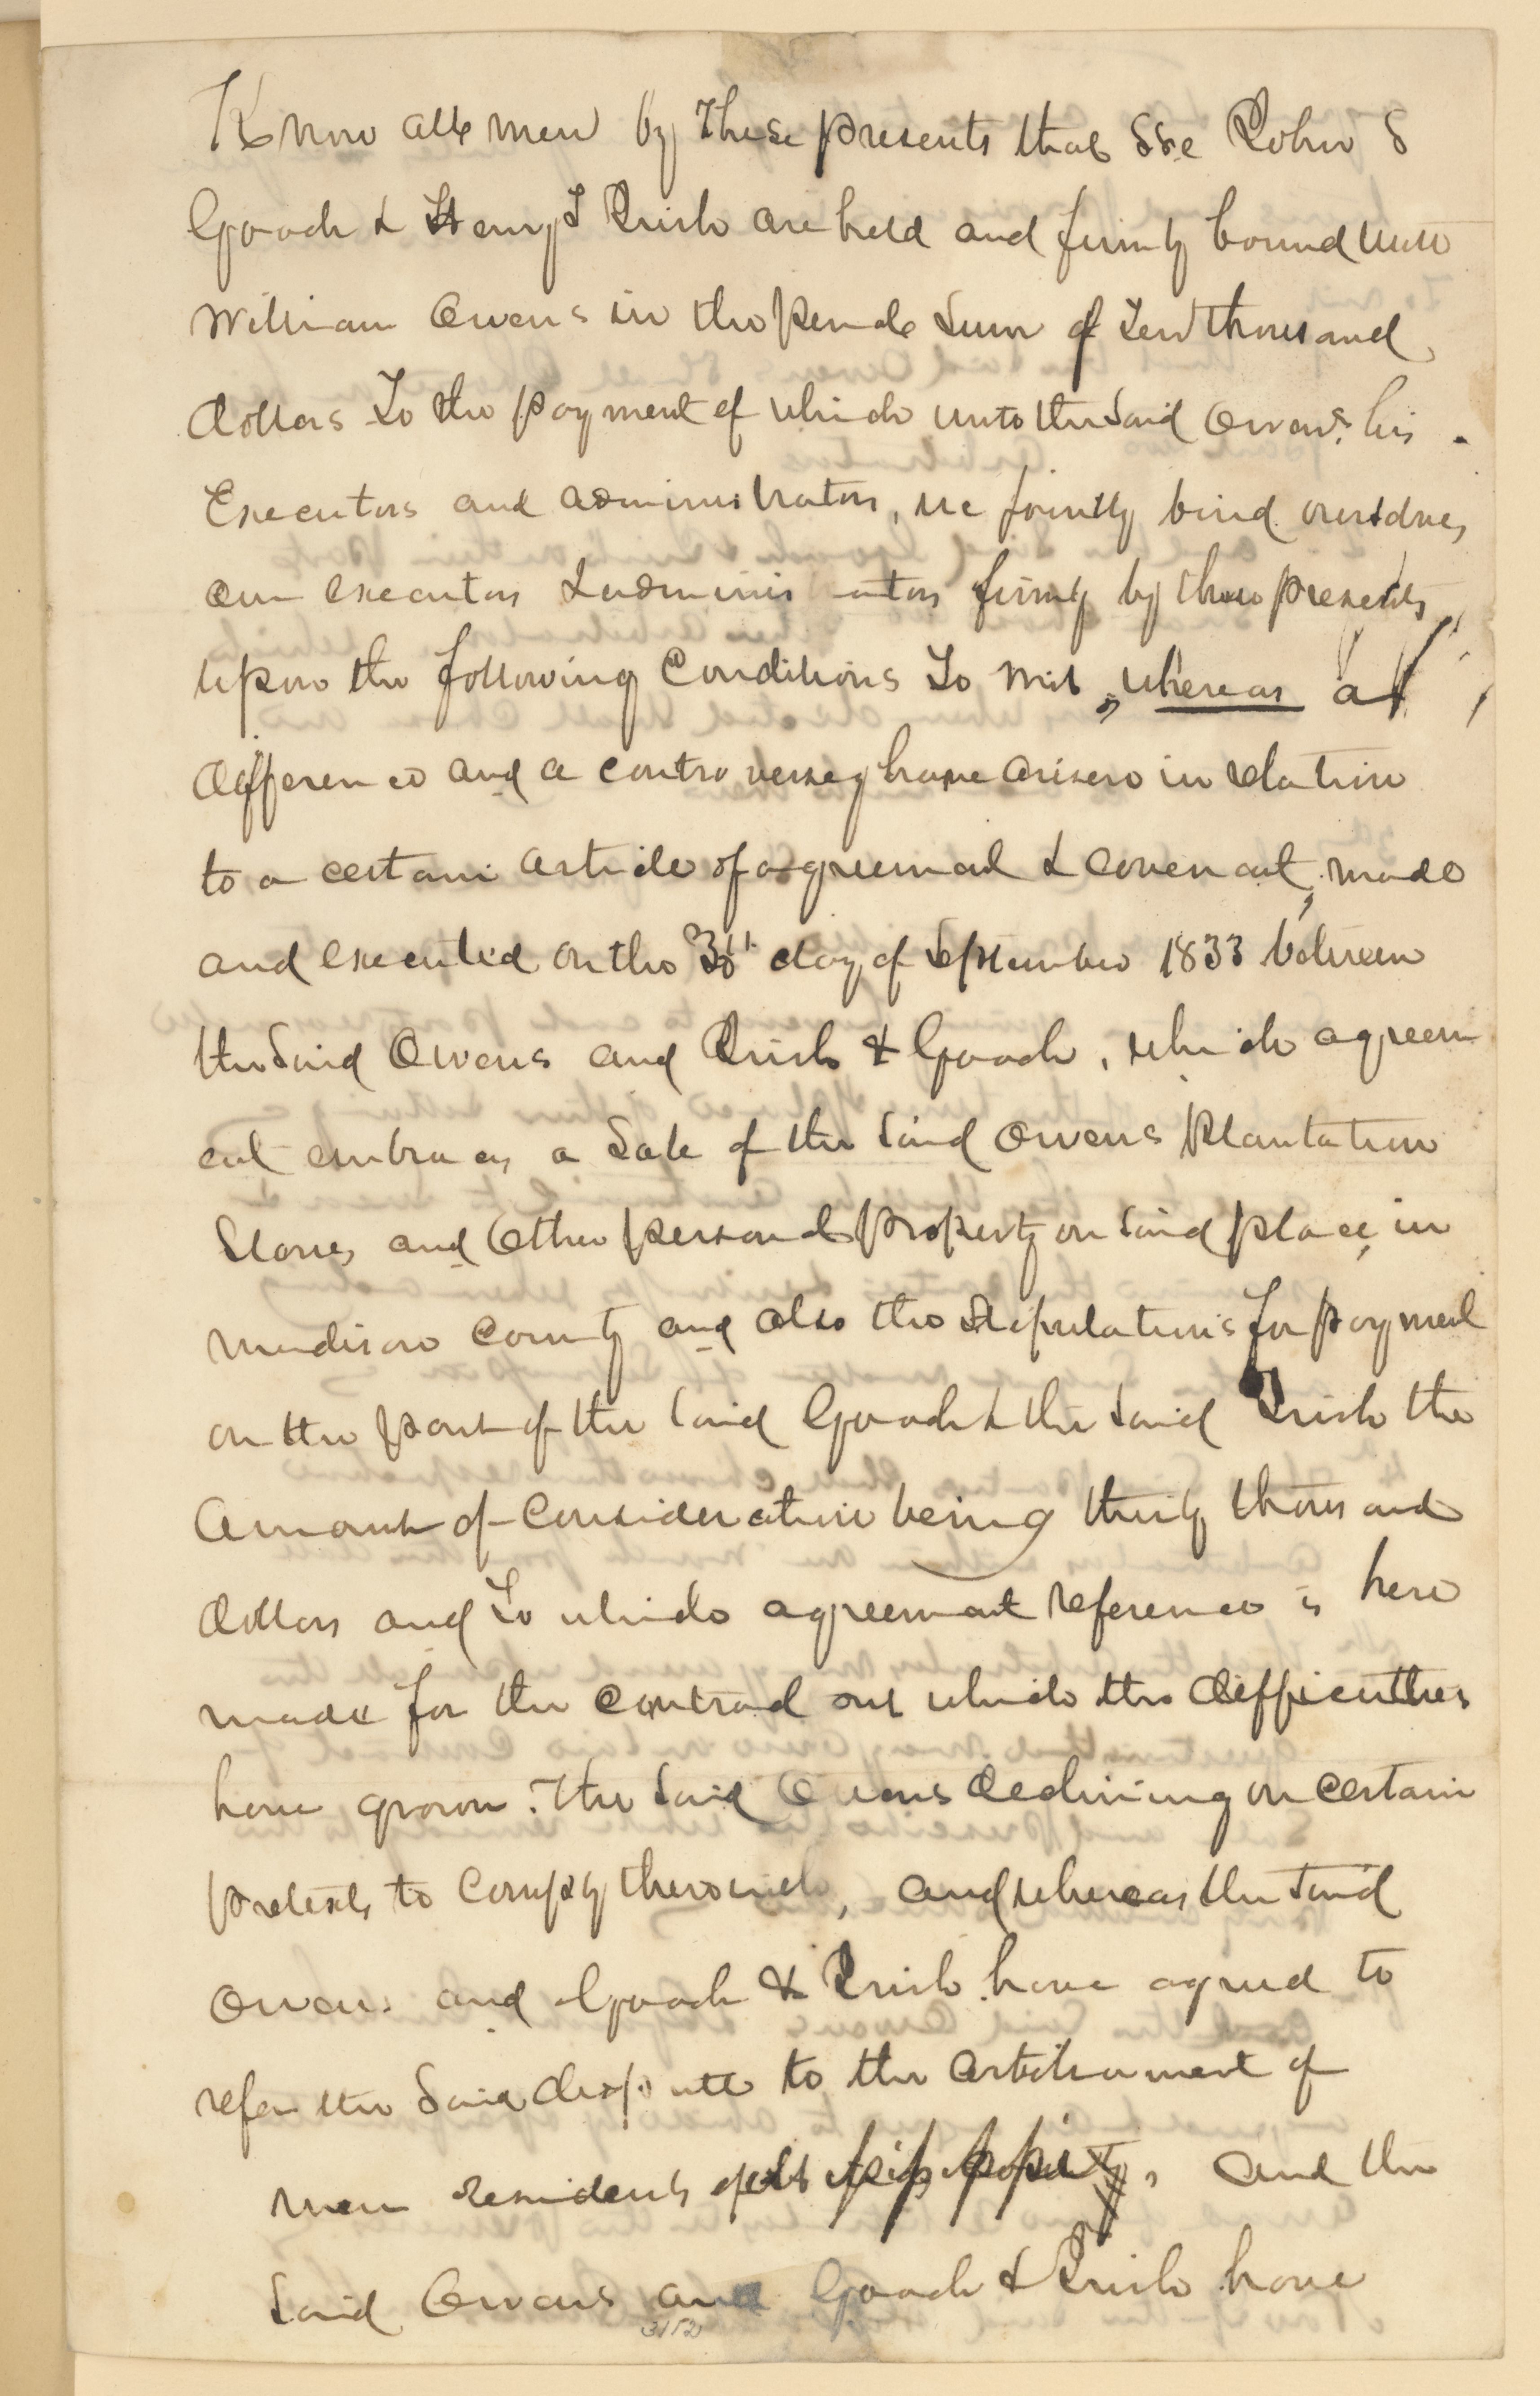 Know all men by these presents that We John S
Gooch & Henry T Irish are held and firmly bound unto
William Owens in the penal Sum of Ten thousand
dollars To the payment of which unto the Said Owens, his
Executors and administrators, we jointly bind ourselves,
our executors & administrators firmly by these presents
upon the following Conditions To wit, whereas a
difference and a controversey have arisen in relation
to a certain article of agreement & covenant, made
and executed on the day of September 1833 between
the Said Owens and Irish & Gooch, which agreem
ent embraces a Sale of the Said Owens Plantation
Slaves and Other personal property on Said place, in
Madison County and also the Stipulations for payment
on the part of the Said Gooch & the Said Irish the
Amount of Consideration being thirty thousand
dollars and To which agreement reference is here
made for the contract out which the difficulties
have grown. The Said Owens declining on certain
pretexts to comply therewith, and whereas the Said
Owens and Gooch & Irish have agreed to
refer the Said dispute to the arbitrament of
men residents of Mississippi, and the
Said Owens and Gooch & Irish have
3152